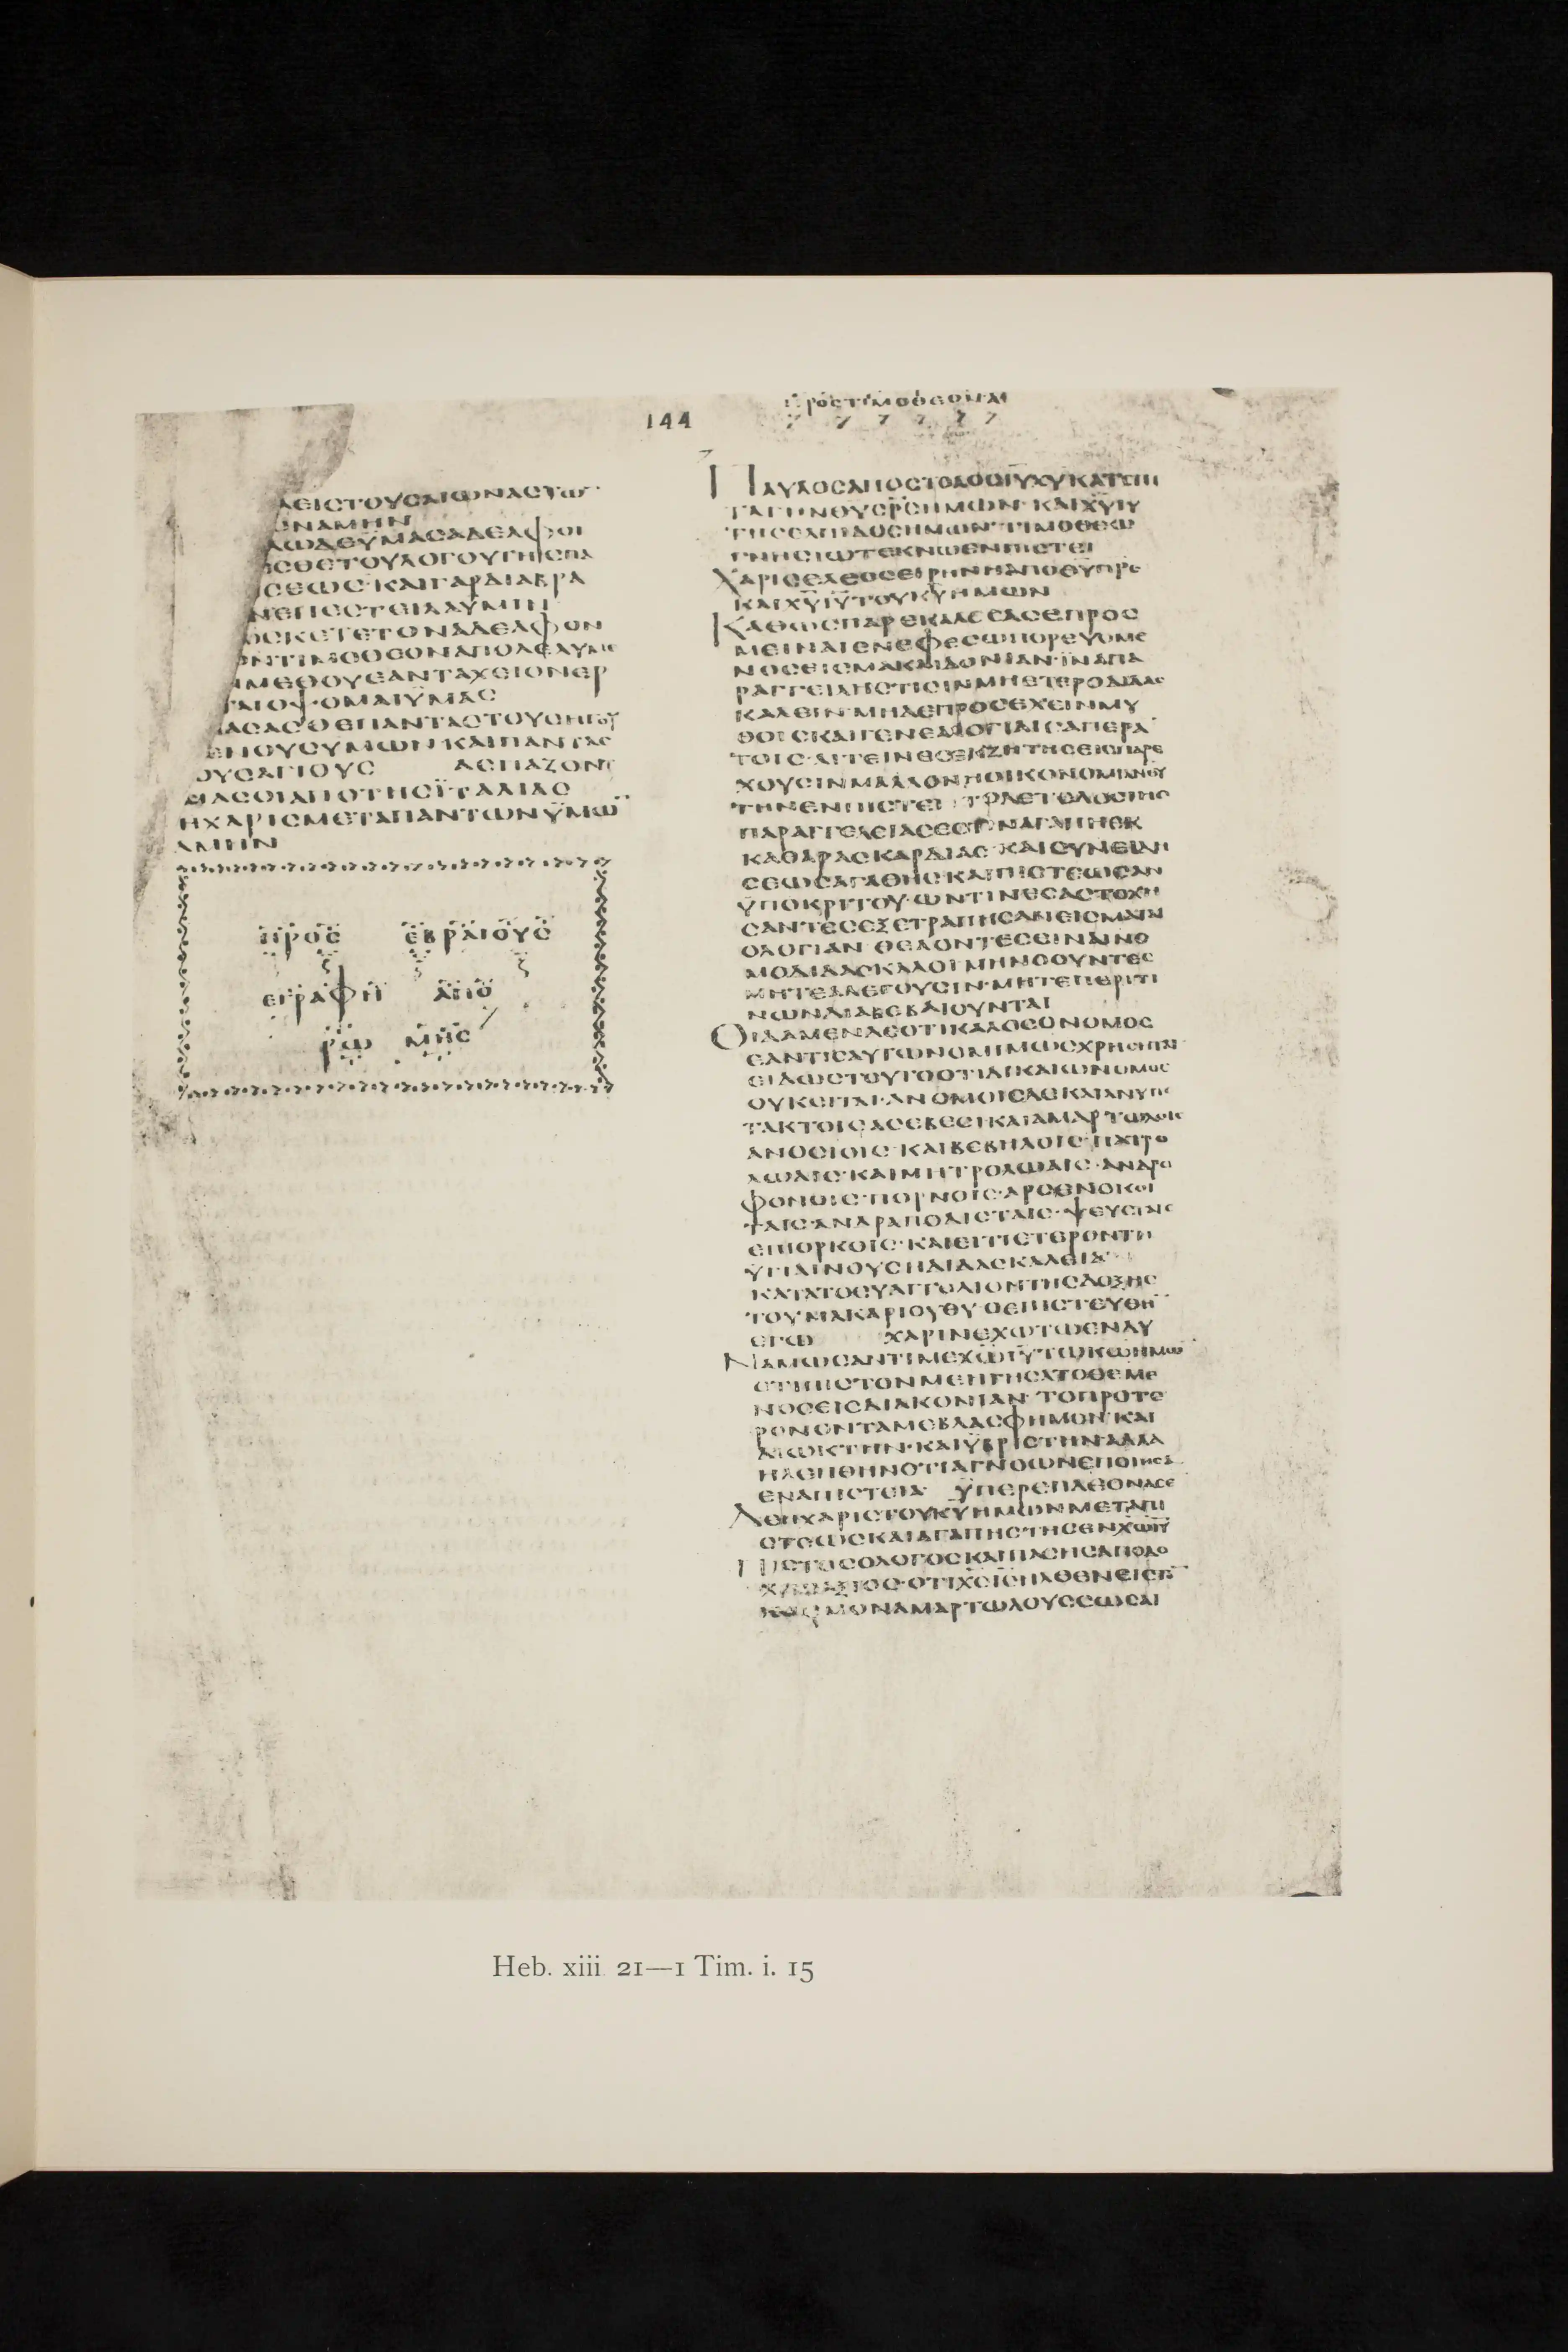 144
ΠΡΟϹΤΙΜΟΘΕΟΝΑ
ΔΕΙϹΤΟΥϹΑΙΩΝΑϹΤΩ
ΩΝΑΜΗΝ
ΛΩΔΕΫΜΑϹΑΔΕΛΦΟΙ
ΕϹΘΕΤΟΥΛΟΓΟΥΤΗϹΠΑ
ϹΕΩϹ·ΚΑΙΓΑΡΔΙΑΒΡΑ
ΝΕΠΕϹΤΕΙΛΑΫΜΙΝ
ΩϹΚΕΤΕΤΟΝΑΔΕΛΦΟΝ
ΩΝΤΙΜΟΘΕΟΝΑΠΟΛΕΛΥΜΕ
ΜΕΘΟΥΕΑΝΤΑΧΕΙΟΝΕΡ
ΤΑΙΟΨΟΜΑΙΫΜΑϹ
ΠΑϹΑϹΘΕΠΑΝΤΑϹΤΟΥϹΗΓΟΥ
ΕΝΟΥϹΥΜΩΝΚΑΙΠΑΝΤΑϹ
ΟΥϹΑΓΙΟΥϹ ΑϹΠΑΖΟΝΤ
ΜΑϹΟΙΑΠΟΤΗϹΪΤΑΛΙΑϹ
ΗΧΑΡΙϹΜΕΤΑΠΑΝΤΩΝΫΜΩ̅
ΑΜΗΝ
ΠΡΟϹ ΕΒΡΑΙΟΥϹ
ΕΓΡΑΦΗ ΑΠΟ
ΡΩ ΜΗϹ
ΠΑΥΛΟϹΑΠΟϹΤΟΛΟϹΙ̅Υ̅Χ̅Υ̅ΚΑΤΕΠΙ
ΤΑΓΗΝΘ̅Υ̅Ϲ̅Ρ̅Ϲ̅ΗΜΩΝ·ΚΑΙΧ̅Υ̅Ι̅Υ̅
ΤΗϹΕΛΠΙΔΟϹΗΜΩΝ·ΤΙΜΟΘΕΩ
ΓΝΗϹΙΩΤΕΚΝΩΕΝΠΙϹΤΕΙ
ΧΑΡΙϹΕΛΕΟϹΕΙΡΗΝΗΑΠΟΘ̅Υ̅Π̅Ρ̅Ϲ̅
ΚΑΙΧ̅Υ̅Ι̅Υ̅ΤΟΥΚ̅Υ̅ΗΜΩΝ
ΚΑΘΩϹΠΑΡΕΚΑΛΕϹΑϹΕΠΡΟϹ
ΜΕΙΝΑΙΕΝΕΦΕϹΩΠΟΡΕΥΟΜΕ
ΝΟϹΕΙϹΜΑΚΑΙΔΟΝΙΑΝ·ΪΝΑΠΑ
ΡΑΓΓΕΙΛΗϹΤΙϹΙΝΜΗΕΤΕΡΟΔΙΔΑϹ
ΚΑΛΕΙΝ·ΜΗΔΕΠΡΟϹΕΧΕΙΝΜΥ
ΘΟΙϹΚΑΙΓΕΝΕΑΛΟΓΙΑΙϹΑΠΕΡΑ
ΤΟΙϹ·ΑΙΤΕΙΝΕϹΕΚΖΗΤΗϹΕΙϹΠΑΡΕ
ΧΟΥϹΙΝΜΑΛΛΟΝΗΟΙΚΟΝΟΜΙΑΝΘ̅Υ̅
ΤΗΝΕΝΠΙϹΤΕΙ ΤΟΔΕΤΕΛΟϹΤΗϹ
ΠΑΡΑΓΓΕΛΕΙΑϹΕϹΤΙΝΑΓΑΠΗΕΚ
ΚΑΘΑΡΑϹΚΑΡΔΙΑϹ·ΚΑΙϹΥΝΕΙΔΗ
ϹΕΩϹΑΓΑΘΗϹ·ΚΑΙΠΙϹΤΕΩϹΑΝ
ΫΠΟΚΡΙΤΟΥ·ΩΝΤΙΝΕϹΑϹΤΟΧΗ
ϹΑΝΤΕϹΕΞΕΤΡΑΠΗϹΑΝΕΙϹΜΑΤΑΙ
ΟΛΟΓΙΑΝ·ΘΕΛΟΝΤΕϹΕΙΝΑΙΝΟ
ΜΟΔΙΔΑϹΚΑΛΟΙΜΗΝΟΟΥΝΤΕϹ
ΜΗΤΕΑΛΕΓΟΥϹΙΝ·ΜΗΤΕΠΕΡΙΤΙ
ΝΩΝΔΙΑΒΕΒΑΙΟΥΝΤΑΙ
ΟΙΔΑΜΕΝΔΕΟΤΙΚΑΛΟϹΟΝΟΜΟϹ
ΕΑΝΤΙϹΑΥΤΩΝΟΜΙΜΩϹΧΡΗϹΗΤΑΙ
ΕΙΔΩϹΤΟΥΤΟΟΤΙΔΙΚΑΙΩΝΟΜΟϹ
ΟΥΚΕΙΤΑΙ·ΑΝΟΜΟΙϹΔΕΚΑΙΑΝΥΠΟ
ΤΑΚΤΟΙϹΑϹΕΒΕϹΙΚΑΙΑΜΑΡΤΩΛΟΙϹ
ΑΝΟϹΙΟΙϹ·ΚΑΙΒΕΒΗΛΟΙϹ·ΠΑΤΡΟ
ΛΩΑΙϹ·ΚΑΙΜΗΤΡΟΛΩΑΙϹ·ΑΝΔΡΟ
ΦΟΝΟΙϹ·ΠΟΡΝΟΙϹ·ΑΡϹΕΝΟΚΟΙ
ΤΑΙϹ·ΑΝΔΡΑΠΟΔΙϹΤΑΙϹ·ΨΕΥϹΤΑΙϹ
ΕΠΙΟΡΚΟΙϹ·ΚΑΙΕΙΤΙΕΤΕΡΟΝΤΗ
ΫΓΙΑΙΝΟΥϹΗΔΙΔΑϹΚΑΛΕΙΑ
ΚΑΤΑΤΟΕΥΑΓΓΕΛΙΟΝΤΗϹΔΟΞΗϹ
ΤΟΥΜΑΚΑΡΙΟΥΘ̅Υ̅·ΟΕΠΙϹΤΕΥΘΗ̅
ΕΓΩ ΧΑΡΙΝΕΧΩΤΩΕΝΔΥ
ΝΑΜΩϹΑΝΤΙΜΕΧ̅Ω̅Ι̅Υ̅ΤΩΚ̅Ω̅ΗΜΩ̅
ΟΤΙΠΙϹΤΟΝΜΕΗΓΗϹΑΤΟΘΕΜΕ
ΝΟϹΕΙϹΔΙΑΚΟΝΙΑΝ·ΤΟΠΡΟΤΕ
ΡΟΝΟΝΤΑΜΕΒΛΑϹΦΗΜΟΝ·ΚΑΙ
ΔΙΩΚΤΗΝ·ΚΑΙΫΒΡΙϹΤΗΝ·ΑΛΛΑ
ΗΛΕΗΘΗΝΟΤΙΑΓΝΟΩΝΕΠΟΙΗϹΑ
ΕΝΑΠΙϹΤΕΙΑ· ΫΠΕΡΕΠΛΕΟΝΑϹΕ
ΔΕΗΧΑΡΙϹΤΟΥΚ̅Υ̅ΗΜΩΝΜΕΤΑΠΙ
ϹΤΕΩϹΚΑΙΑΓΑΠΗϹΤΗϹΕΝΧ̅Ω̅Ι̅Υ̅
ΠΙϹΤΟϹΟΛΟΓΟϹΚΑΙΠΑϹΗϹΑΠΟΔΟ
ΧΗϹΑΞΙΟϹ·ΟΤΙΧ̅Ϲ̅Ι̅Ϲ̅ΗΛΘΕΝΕΙϹΤΟ̅
ΚΟϹΜΟΝΑΜΑΡΤΩΛΟΥϹϹΩϹΑΙ
Heb. xiii 21—1 Tim. i. 15